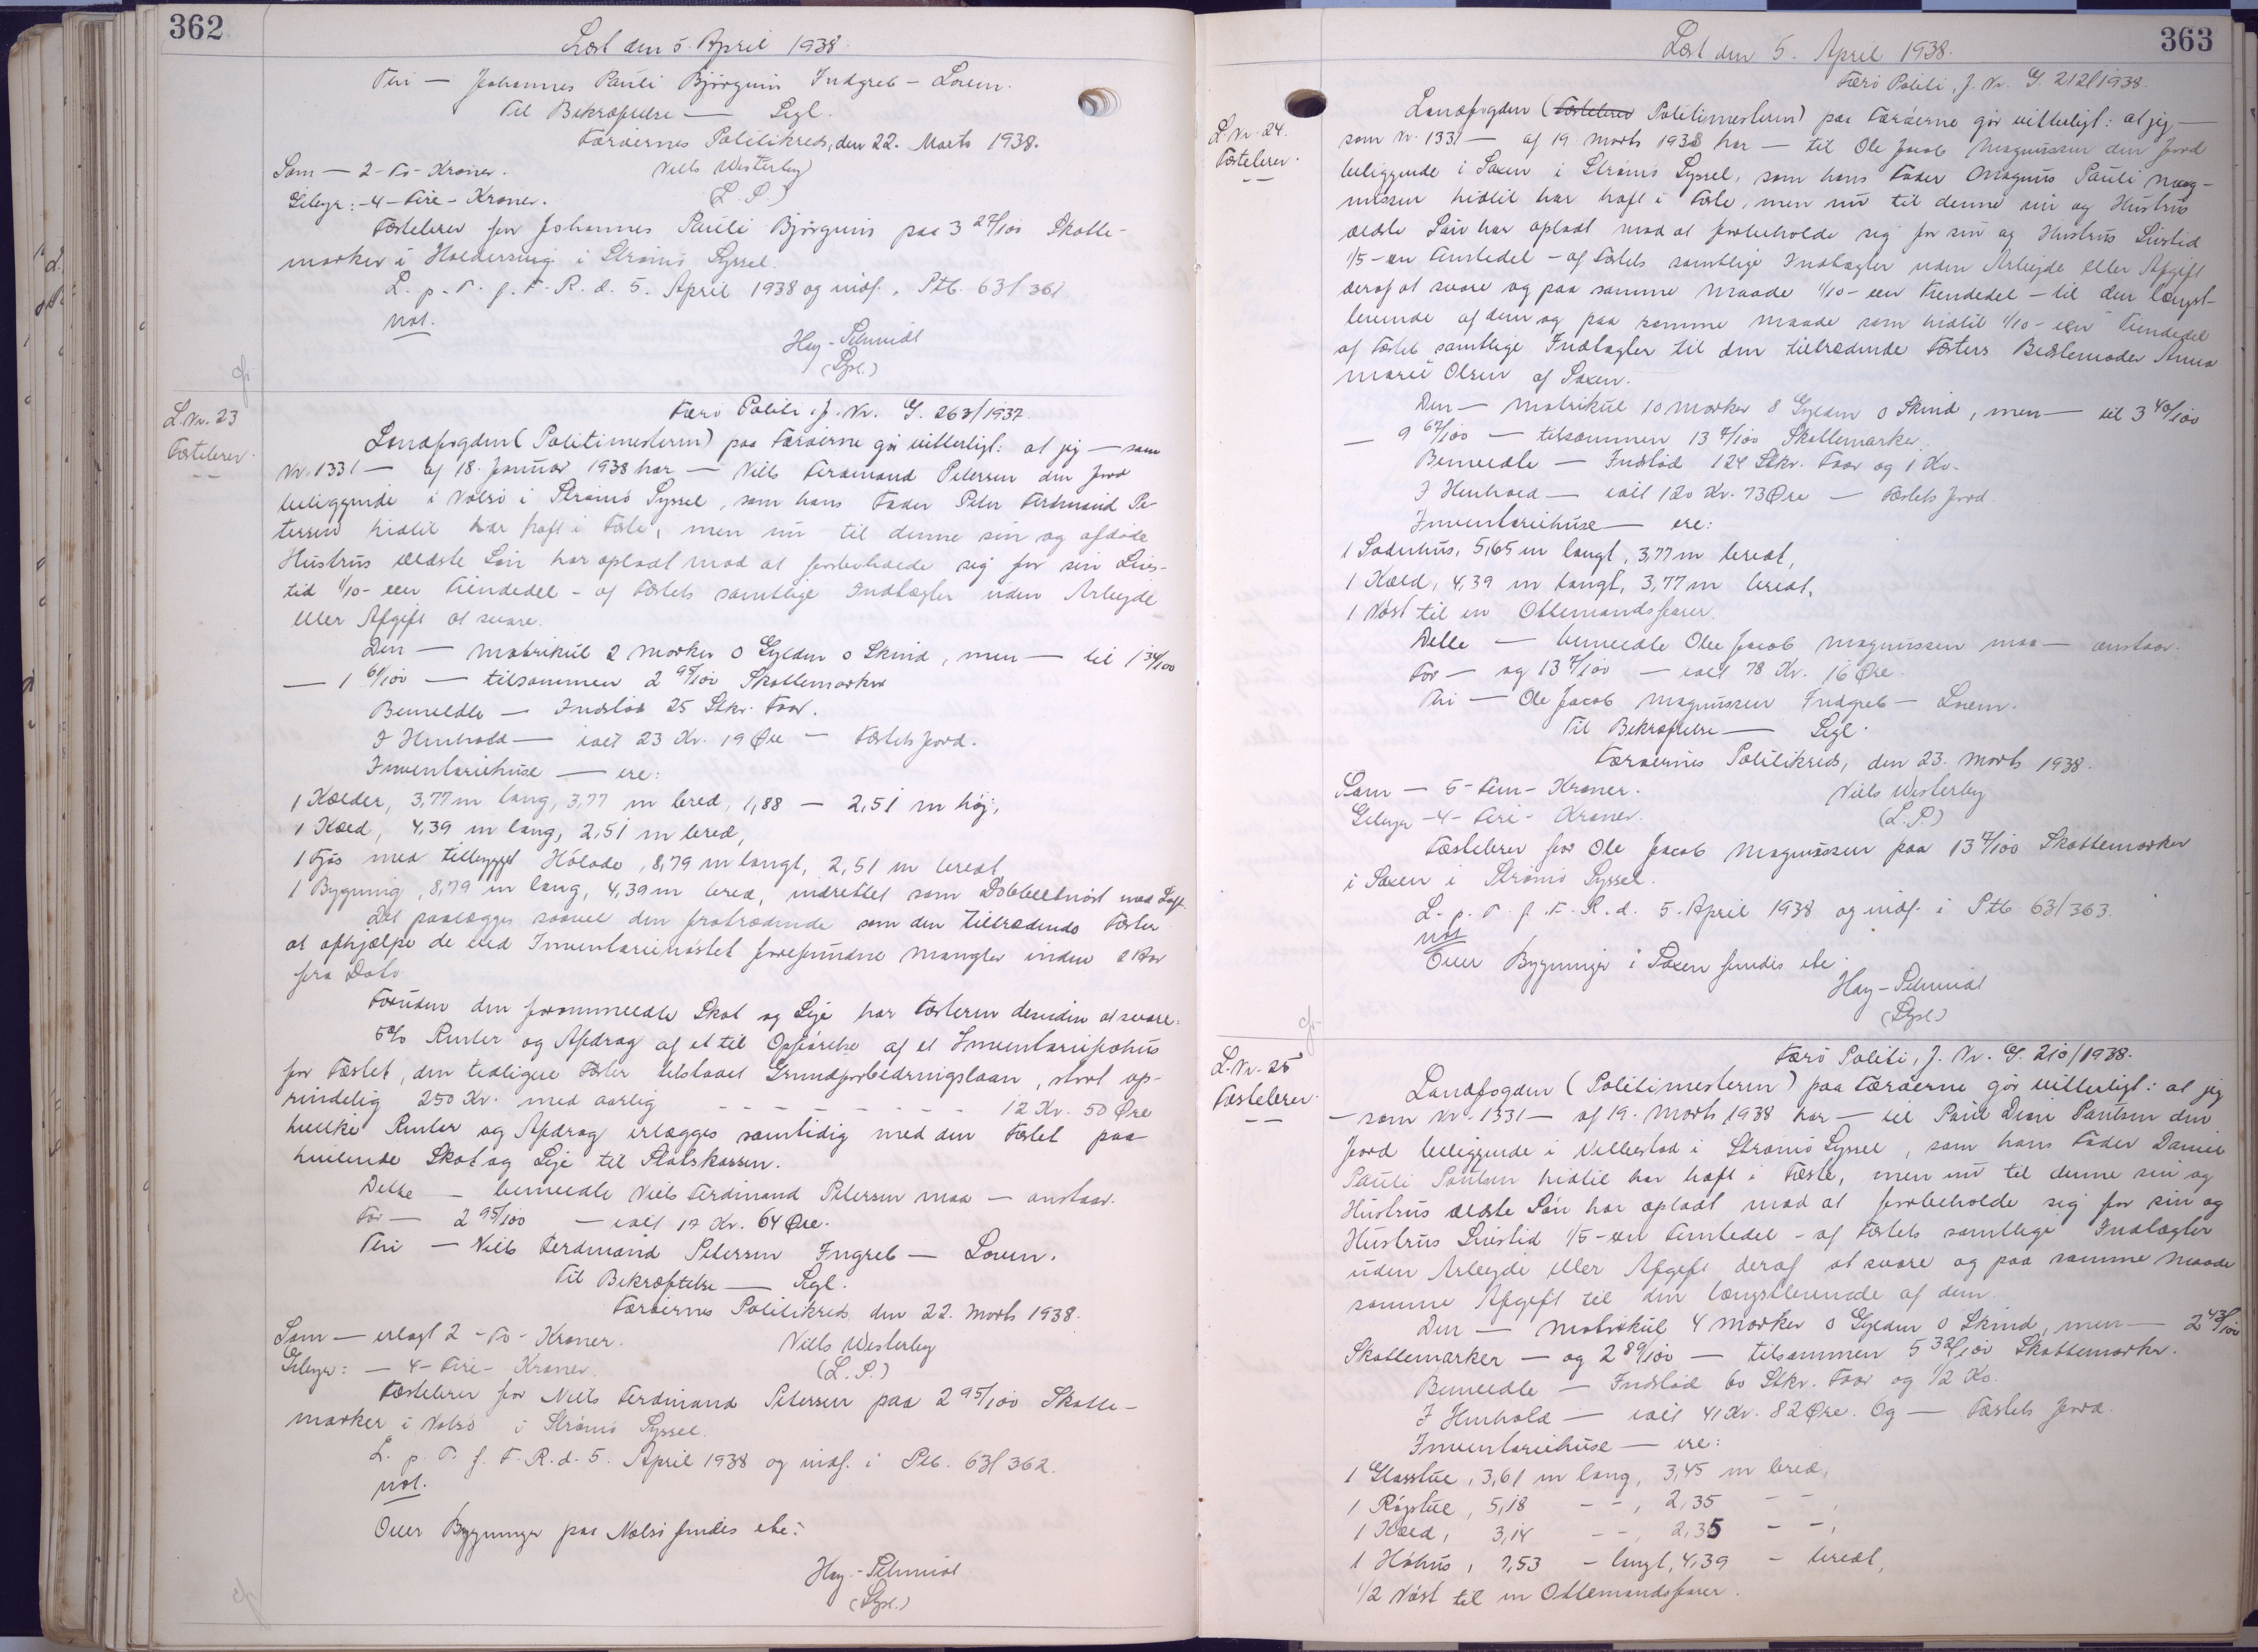 362
Læst den 5. April 1938.
Thi — Johannes Pauli Bjørguin Indgreb — Loven.
Til Bekræftelse — Segl.
Færøernes Politikreds, den 22. Marts 1938.
Som — 2 - To - Kroner.
Niels Westerby
Gebyr: - 4 - Fire - Kroner.
(L. S.)
Fæstebrev for Johannes Pauli Bjørguin paa 3 27/100 Skatte-
marker i Haldersvig i Strømø Syssel.
L. p. T. f. F. R. d. 5. April 1938 og indf. i Ptb. 63/361
not.
Hay-Schmidt
(Dpt.)
L. Nr. 23
Fæstebrev.
Færø Politi, J. Nr. G. 263/1937.
Landfogden (Politimesteren) paa Færøerne gør vitterligt: at jeg — som
Nr. 1331 — af 18. Januar 1938 har — Niels Ferdinand Petersen den Jord
beliggende i Nolsø i Strømø Syssel, som hans Fader Peter Ferdinand Pe-
tersen hidtil har haft i Fæste, men nu til denne sin og afdøde
Hustrus ældste Søn har opladt mod at forbeholde sig for sin Livs-
tid 1/10 - een Tiendedel - af Fæstets samtlige Indtægter uden Arbejde
eller Afgift at svare.
Den — Matrikul 2 Marker 0 Gylden 0 Skind, men — til 1 34/100
— 1 61/100 — tilsammen 2 95/100 Skattemarker
Bemeldte — Indstød 25 Stkr. Faar.
I Henhold — ialt 23 Kr. 19 Øre — Fæstets Jord.
Inventariehuse — ere:
1 Kælder, 3,77 m lang, 3,77 m bred, 1,88 — 2,51 m høj,
1 Kæld, 4,39 m lang, 2,51 m bred,
1 Fjøs med tilbygget Hølade, 8,79 m langt, 2,51 m bredt
1 Bygning, 8,79 m lang, 4,39 m bred, indrettet som Dobbeltnøst med Loft.
Det paalægges saavel den fratrædende som den tiltrædende Fæster
at afhjælpe de ved Inventarienøstet forefundne Mangler inden 2 Aar
fra Dato.
Foruden den foranmeldte Skat og Leje har Fæsteren desuden at svare:
5% Renter og Afdrag af et til Opførelse af et Inventariehus
for Fæstet, den tidligere Fæster tilstaaet Grundforbedringslaan, stort op-
rindelig 250 Kr. med aarlig - - - - - - - - 12 Kr. 50 Øre
hvilke Renter og Afdrag erlægges samtidig med den Fæstet paa-
hvilende Skat og Leje til Statskassen.
Dette — bemeldte Niels Ferdinand Petersen maa — anstaar.
For — 2 95/100 — ialt 17 Kr. 64 Øre.
Thi — Niels Ferdinand Petersen Ingreb — Loven.
Til Bekræftelse — Segl.
Færøernes Politikreds den 22. Marts 1938.
Som — erlagt 2 - To - Kroner.
Niels Westerby
Gebyr: — 4 - Fire - Kroner.
(L. S.)
Fæstebrev for Niels Ferdinand Petersen paa 2 95/100 Skatte-
marker i Nolsø i Strømø Syssel.
L. p. T. f. F. R. d. 5. April 1938 og indf. i Ptb. 63/362.
not.
Over Bygninger paa Nolsø findes ete:
Hay-Schmidt
(Dpt.)
363
Læst den 5. April 1938.
Færø Politi, J. Nr. G. 212/1938.
L. Nr. 24.
Fæstebrev.
Landfogden (Fæstebrev Politimesteren) paa Færøerne gør vitterligt: at jeg —
som Nr. 1331 — af 19. Marts 1938 har — til Ole Jacob Magnussen den Jord
beliggende i Saxen i Strømø Syssel, som hans Fader Magnus Pauli Mag-
nussen hidtil har haft i Fæste, men nu til denne sin og Hustrus
ældste Søn har opladt mod at forbeholde sig for sin og Hustrus Livstid
1/5 - en Femtedel - af Fæstets samtlige Indtægter uden Arbejde eller Afgift
deraf at svare og paa samme Maade 1/10 - een Tiendedel - til den længst-
levende af dem og paa samme Maade som hidtil 1/10 - een Tiendedel
af Fæstets samtlige Indtægter til den tiltrædende Fæsters Bedstemoder Anna
Marie Olsen af Saxen.
Den — Matrikul 10 Marker 8 Gylden 0 Skind, men — til 3 40/100
— 9 67/100 — tilsammen 13 7/100 Skattemarker.
Bemeldte — Indstød 124 Stkr. Faar og 1 Ko.
I Henhold — ialt 120 Kr. 73 Øre — Fæstets Jord.
Inventariehuse — ere:
1 Sodnhus, 5,65 m langt, 3,77 m bredt,
1 Kæld, 4,39 m langt, 3,77 m bredt,
1 Nøst til en Ottemandsfarer.
Dette — bemeldte Ole Jacob Magnussen maa — anstaar.
For — og 13 7/100 — ialt 78 Kr. 16 Øre.
Thi — Ole Jacob Magnussen Indgreb — Loven.
Til Bekræftelse — Segl.
Færøernes Politikreds, den 23. Marts 1938.
Som — 5 - Fem - Kroner.
Niels Westerby
Gebyr - 4 - Fire - Kroner.
(L. S.)
Fæstebrev for Ole Jacob Magnussen paa 13 7/100 Skattemarker
i Saxen i Strømø Syssel.
L. p. T. f. F. R. d. 5. April 1938 og indf. i Ptb. 63/363.
not
Over Bygninger i Saxen findes ete.
Hay-Schmidt
(Dpt.)
L. Nr. 25
Fæstebrev.
Færø Politi, J. Nr. G. 210/1938.
Landfogden (Politimesteren) paa Færøerne gør vitterligt: at jeg
— som Nr. 1331 — af 19. Marts 1938 har — til Poul Poulsen den
Jord beliggende i Velbestad i Strømø Syssel, som hans Fader Daniel
Pauli Poulsen hidtil har haft i Fæste, men nu til denne sin og
Hustrus ældste Søn har opladt mod at forbeholde sig for sin og
Hustrus Livstid 1/5 - en Femtedel - af Fæstets samtlige Indtægter
uden Arbejde eller Afgift deraf at svare og paa samme Maade
samme Afgift til den længstlevende af dem.
Den — Matrikul 4 Marker 0 Gylden 0 Skind, men — 2 43/100
Skattemarker — og 2 89/100 — tilsammen 5 32/100 Skattemarker.
Bemeldte — Indstød 60 Stkr. Faar og 1/2 Ko.
I Henhold — ialt 41 Kr. 82 Øre. Og — Fæstets Jord.
Inventariehuse — ere:
1 Glasstue, 3,61 m lang, 3,45 m bred,
1 Røgstue, 5,18 - - , 2,35 - - ,
1 Kæld, 3,14 - - , 2,35 - - ,
1 Høhus, 7,53 - langt, 4,39 - bredt,
1/2 Nøst til en Ottemandsfarer.